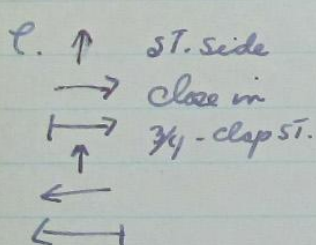 l. ↑ ST. side
→ close in
↦ 3/4 - clap ST.
↑
←
↤